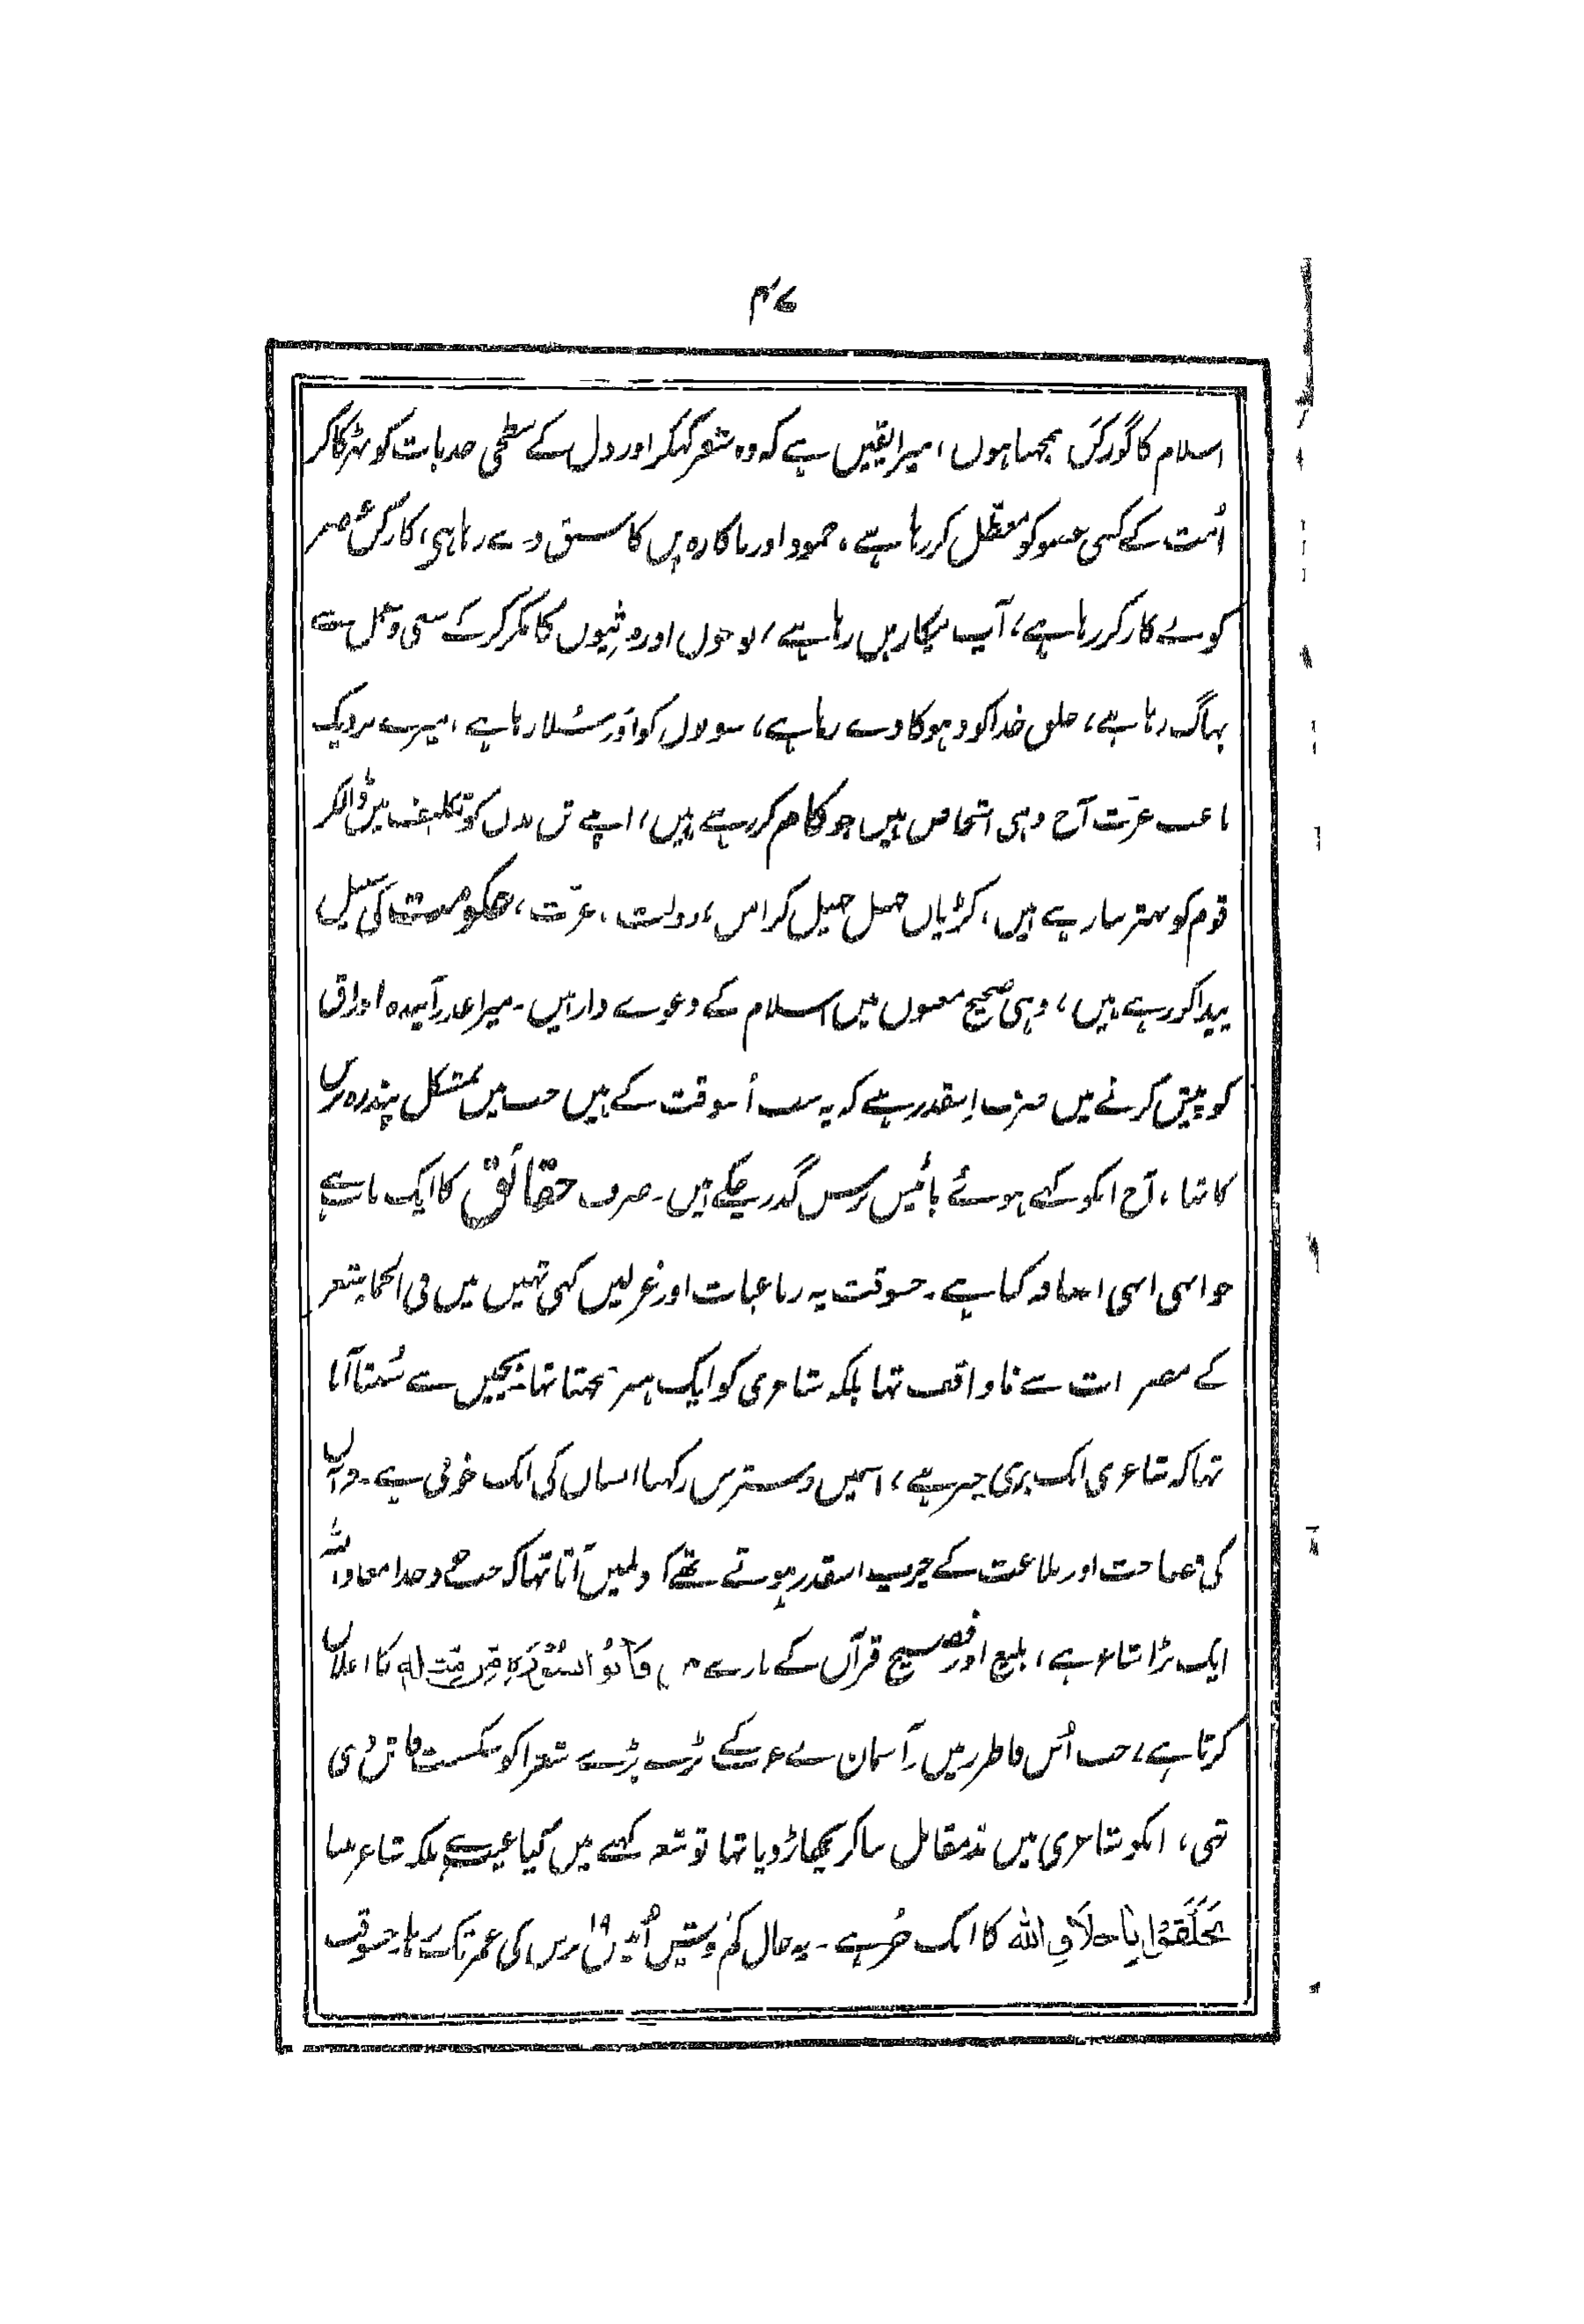 ۴۷
اسلام کا گورکن سمجھتا ہوں، میرا یقین ہے کہ وہ شعر کہکر اور دل کے سطحی جذبات کو بھڑکا کر
اُمت کے کسی عضو کو معطل کر رہا ہے، جمود اور ناکارہ پن کا سبق دے رہا ہی، کارکن عنصر
کو بے کار کر رہا ہے، آپ بیکار بن رہا ہے، اور روٹیوں کا مکر کر کے سعی و عمل سے
بہاگ رہا ہے، خلق خدا کو دہوکا دے رہا ہے، سوتوں کو اَور سُلا رہا ہے، میرے نزدیک
باعث عزّت آج وہی اشخاص ہیں جو کام کر رہے ہیں، اپنے تن بدن کو تکلیف میں ڈالکر
قوم کو بہتر بنا رہے ہیں، کڑیاں جھیل جھیل کر امن، دولت، عزّت، حکومت کی سبیل
پیدا کر رہے ہیں، وہی صحیح معنوں میں اسلام کے دعوے دار ہیں۔ میرا عذر آیندہ اوراق
کو پیش کرنے میں صرف اِسقدر ہے کہ یہ سب اُسوقت کے ہیں جب میں بمشکل پندرہ برس
کا تہا، آج انکو کہے ہوئے بائیس برس گذر چکے ہیں۔ صرف حقائق کا ایک باب ہے
جو ابھی ابھی اضافہ کیا ہے۔ جسوقت یہ رباعیات اور غزلیں کہی تہیں میں فی الحقیقت شعر
کے مضرات سے ناواقف تہا بلکہ شاعری کو ایک ہنر سمجھتا تہا۔ بچپن سے سُنتا آیا
تہا کہ شاعری ایک بڑی چیز ہے، اسمیں دسترس رکہنا انسان کی ایک خوبی ہے۔ قرآن
کی فصاحت اور بلاغت کے چرچے اسقدر ہوتے تھے کہ دلمیں آتا تہا کہ جب خود خدا معاذ اللہ
ایک بڑا شاعر ہے، بلیغ اور فصیح قرآن کے بارے میں فَأْتُوا بِسُورَةٍ مِّن مِّثْلِهِ کا اعلان
کرتا ہے، جب اُس فاطرِ زمین و آسمان نے عرب کے بڑے بڑے شعرا کو شکست فاش دی
تہی، انکو شاعری میں مدمقابل بنا کر پچھاڑ دیا تہا تو شعر کہنے میں کیا عیب ہے بلکہ شاعر بننا
تَخَلَّقُوا بِأَخلَاقِ اللہ کا ایک جُز ہے۔ یہ حال کم و بیش اُنیس ۱۹ برس کی عمر تک رہا۔ جسوقت